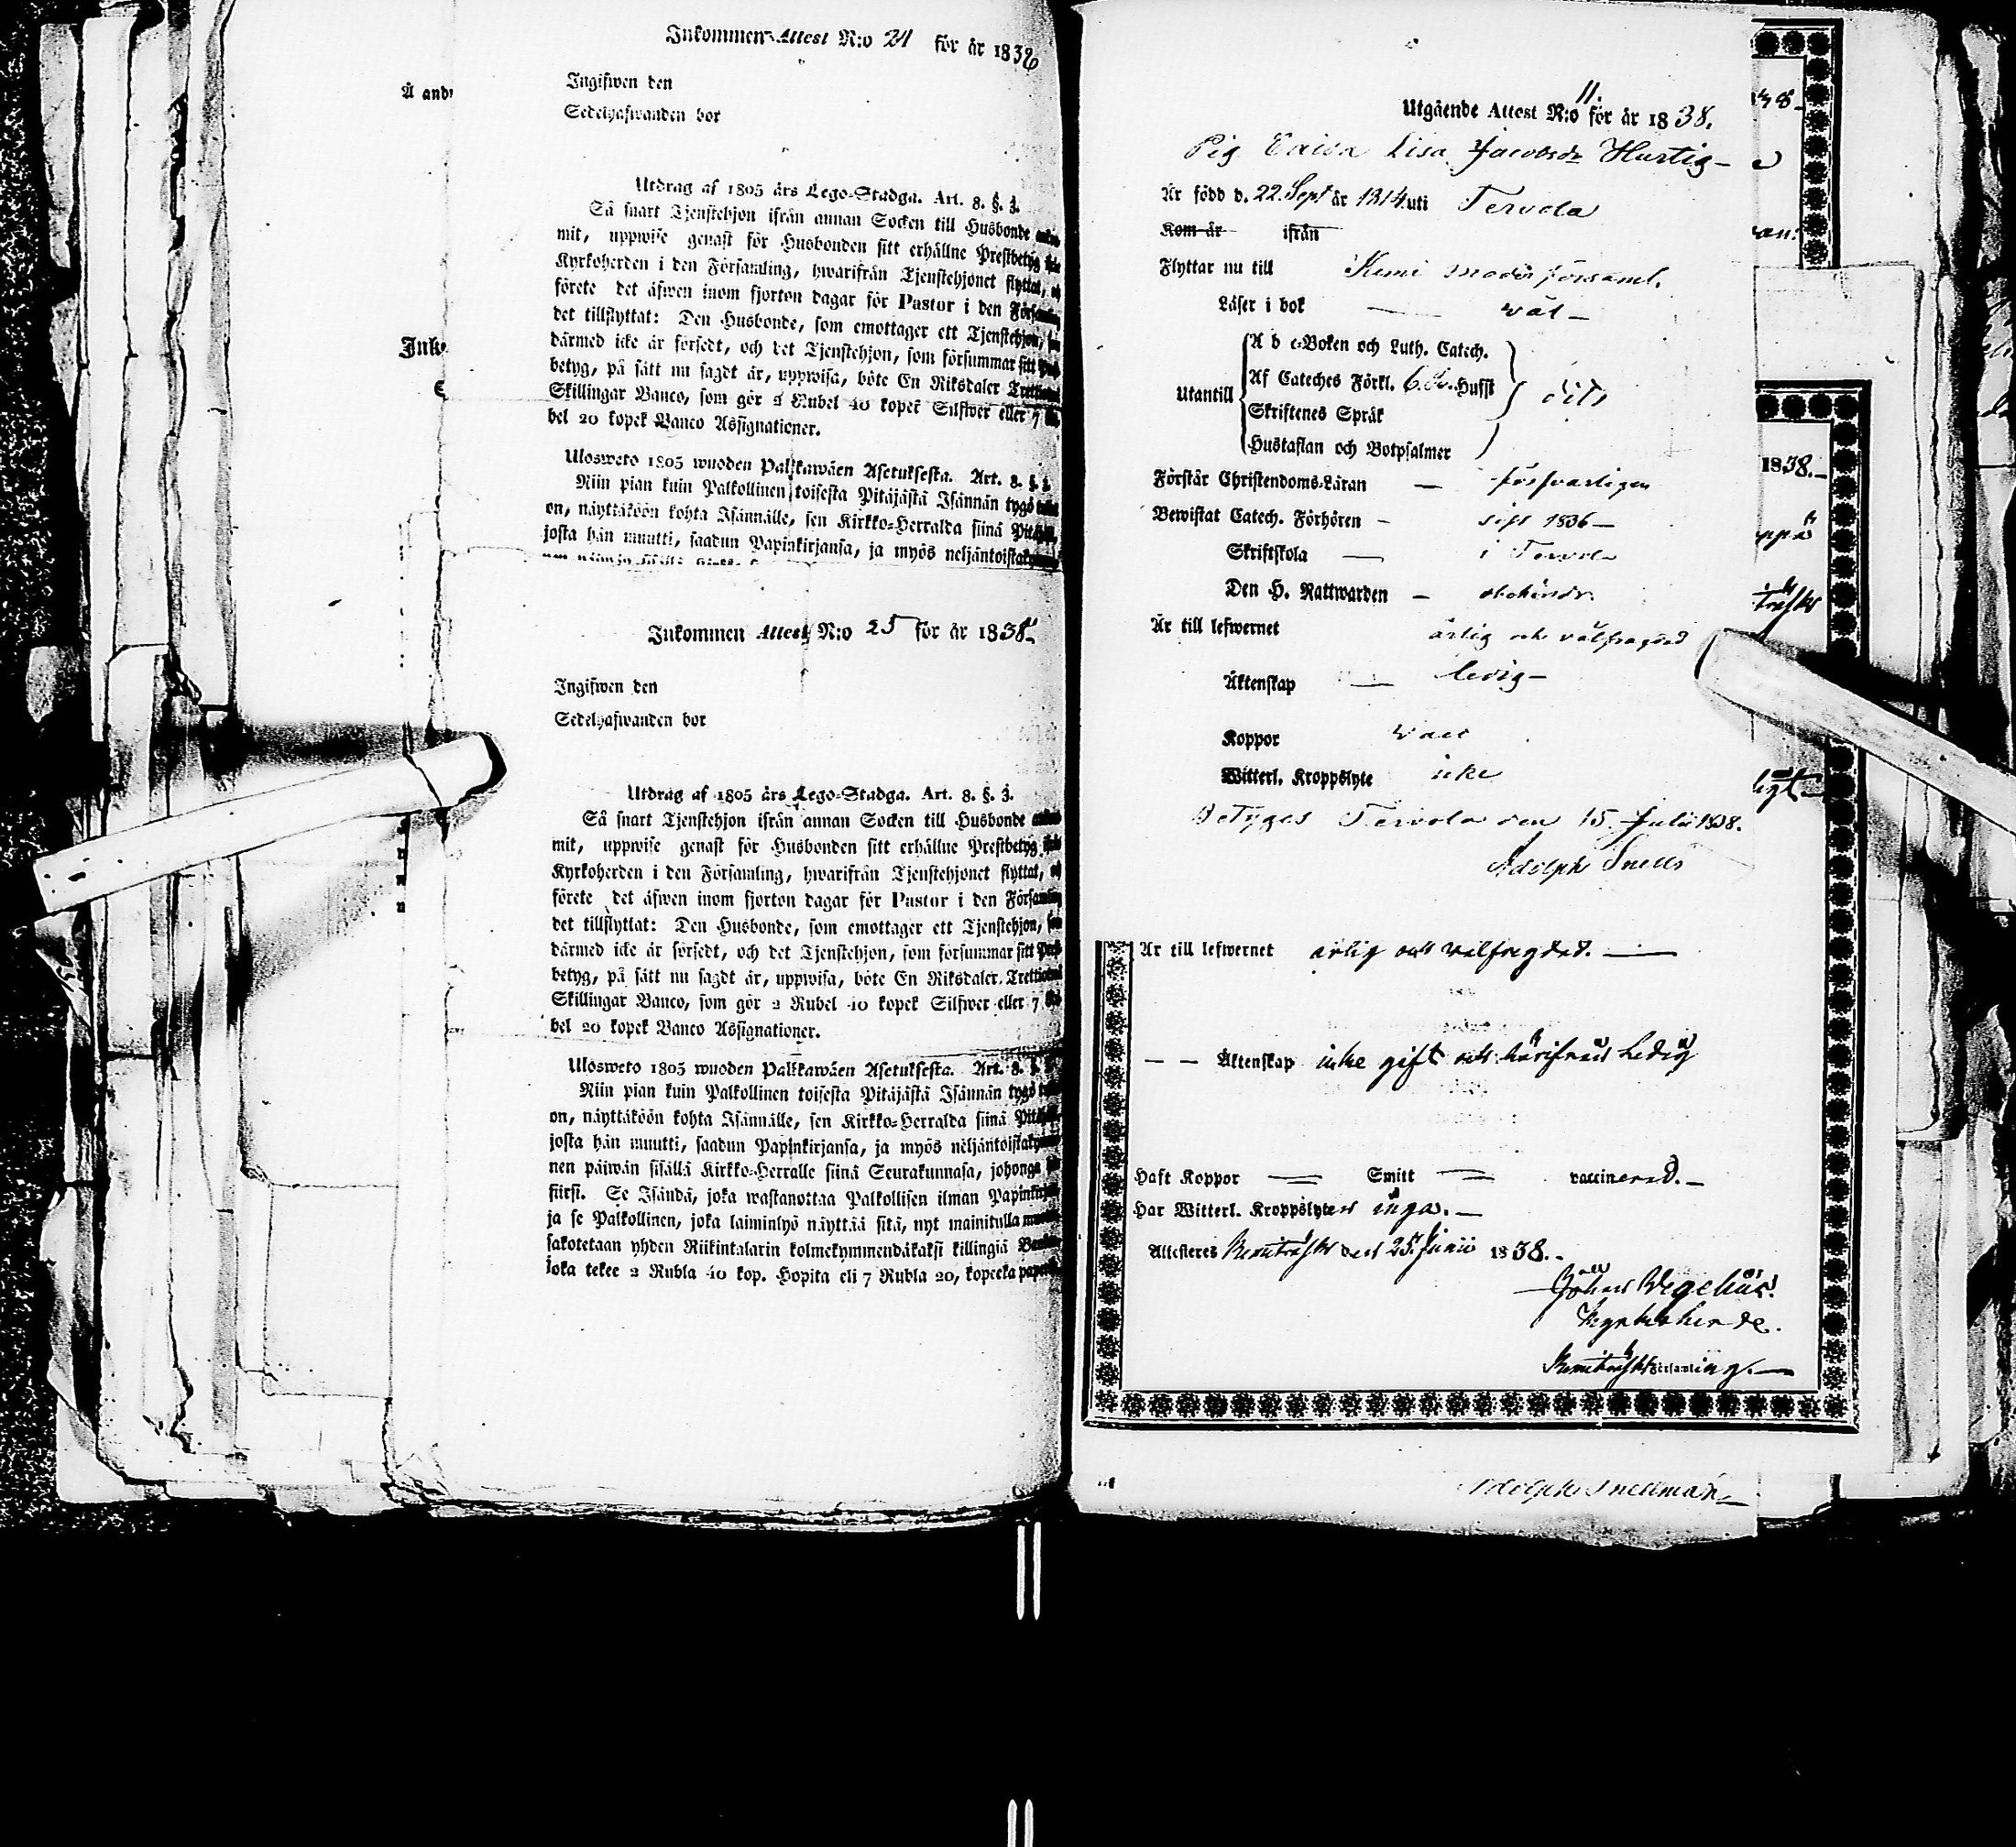 Inkommen Attest N:o 24 för år 1838
Ingifwen den
Sedelhafwanden bor
Å and
Utdrag af 1805 års Lego-Stadga. Art. 8. §. 3.
Så snart Tjenstehjon ifrån annan Socken till Husbonde
mit, uppwise genast för Husbonden sitt erhållne Prestbetyg
Kyrkoherden i den Församling, hwarifrån Tjenstehjonet flyttat,
förete det äfwen inom fjorton dagar för Pastor i den
det tillflyttat: Den Husbonde, som emottager ett Tjenstehjon,
därmed icke är försedt, och det Tjenstehjon, som försummar sitt
betyg, på sätt nu sagdt är, uppwisa, böte En Riksdaler
Skillingar Banco, som gör 2 Rubel 40 kopek Silfwer eller 7
bel 20 kopek Banco Assignationer.
Ink
Ulosweto 1805 wuoden Palkkawäen Asetuksesta. Art. 8. §. 3.
Niin pian kuin Palkollinen toisesta Pitäjästä Isännän tygö
on, näyttäköön kohta Isännälle, sen Kirkko-Herralda siinä
josta hän muutti, saadun Papinkirjansa, ja myös
Inkommen Attest N:o 25 för år 1838.
Ingifwen den
Sedelhafwanden bor
Utdrag af 1805 års Lego-Stadga. Art. 8. §. 3.
Så snart Tjenstehjon ifrån annan Socken till Husbonde
mit, uppwise genast för Husbonden sitt erhållne Prestbetyg
Kyrkoherden i den Församling, hwarifrån Tjenstehjonet flyttat,
förete det äfwen inom fjorton dagar för Pastor i den
det tillflyttat: Den Husbonde, som emottager ett Tjenstehjon,
därmed icke är försedt, och det Tjenstehjon, som försummar sitt
betyg, på sätt nu sagdt är, uppwisa, böte En Riksdaler
Skillingar Banco, som gör 2 Rubel 40 kopek Silfwer eller 7
bel 20 kopek Banco Assignationer.
Ulosweto 1805 wuoden Palkkawäen Asetuksesta. Art. 8. §.
Niin pian kuin Palkollinen toisesta Pitäjästä Isännän tygö
on, näyttäköön kohta Isännälle, sen Kirkko-Herralda siinä
josta hän muutti, saadun Papinkirjansa, ja myös
nen päiwän sisällä Kirkko-Herralle siinä Seurakunnasa,
siirsi. Se Isändä, joka wastanottaa Palkollisen ilman
ja se Palkollinen, joka laiminlyö näyttää sitä, nyt mainitulla
sakotetaan yhden Riikintalarin kolmekymmendäkaksi killingiä
joka tekee 2 Rubla 40 kop. Hopita eli 7 Rubla 20, kopeeka
Utgående Attest N:o 11. för år 1838.
Pig. Caisa Lisa Jacobsdr Hurtig
Är född d. 22. Sept år 1814 uti Tervola
Kom år ifrån
Flyttar nu till Kemi moder församl.
Läser i bok — wäl —
A b c-Boken och Luth. Catech.
Utantill Af Cateches Förkl. 6. Hufst
Skriftenes Språk
Hustaflan och Botpsalmer
Förstår Christendoms-Läran — försvarligen
Bewistat Catech. Förhören — sist 1836 —
Skriftskola — i Tervola
Den H. Nattwarden — obehindr.
Är till lefwernet ärlig och välfrägdad
Äktenskap — ledig —
Koppor vacc
Witterl. Kroppslyte icke
Betygas Tervola den 15. Julii 1838.
Adolph Snells
Är till lefwernet ärlig och välfrägdad. —
— — Äktenskap icke gift och härifrån Ledig
Haft Koppor — Smitt — vaccinerad. —
Har Witterl. Kroppslyten inga. —
Attesteras Kemiträsk den 25. Junii 1838. —
Johan Wegelius.
Kyrkoherde.
Kemiträsk Församling. —
Adolph Snellman
1838. —